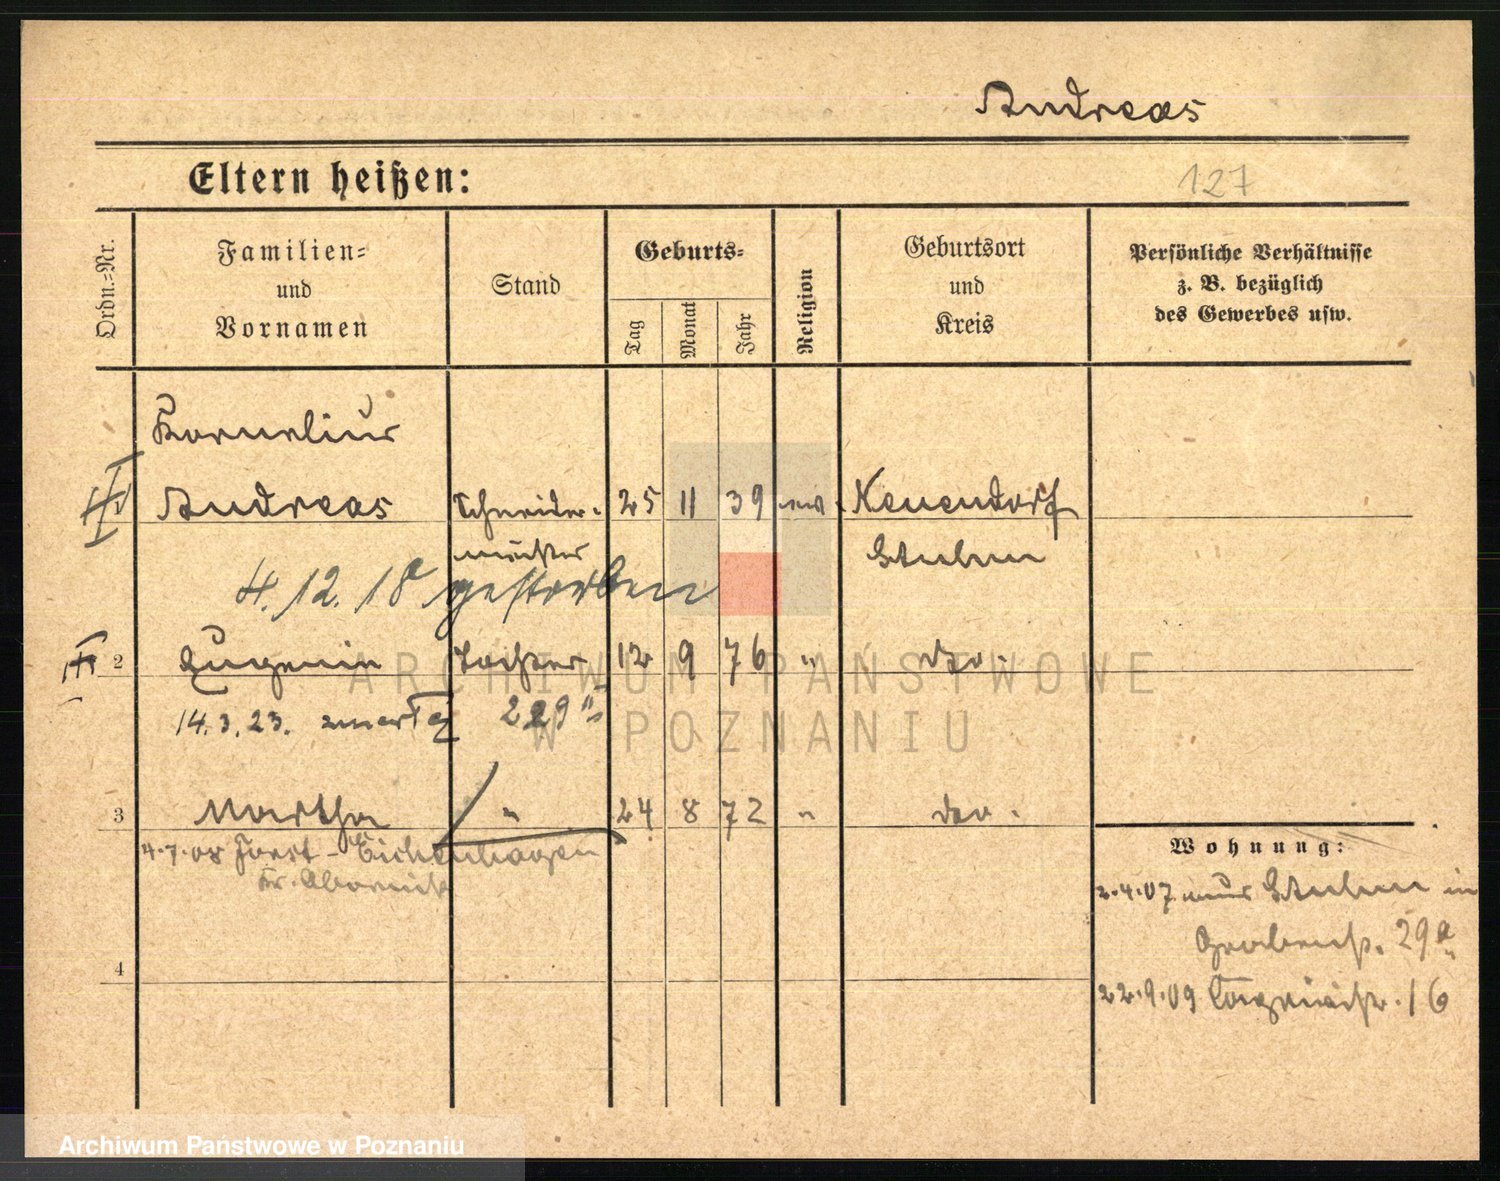 Andreas
Eltern heißen:
127
Ordn.=Nr.
Familien=
und
Vornamen
Stand
Geburts=
Tag
Monat
Jahr
Religion
Geburtsort
und
Kreis
Persönliche Verhältnisse
z. B. bezüglich
des Gewerbes usw.
Kornelius
Andreas Schneider- 25 11 39 ev. Neuendorf
meister Stuhm
4.12.18 gestorben
2 Eugenie Tochter 12 9 76 " do.
14.3.23. zmarła 229
3 Martha " 24 8 72 " do.
4.7.08 Forst-Eichenhagen
Kr. Obornik
4
Wohnung:
2.4.07 aus Stuhm in
Grabenstr. 29a
22.9.09 16
ARCHIWUM PAŃSTWOWE
W POZNANIU
Archiwum Państwowe w Poznaniu